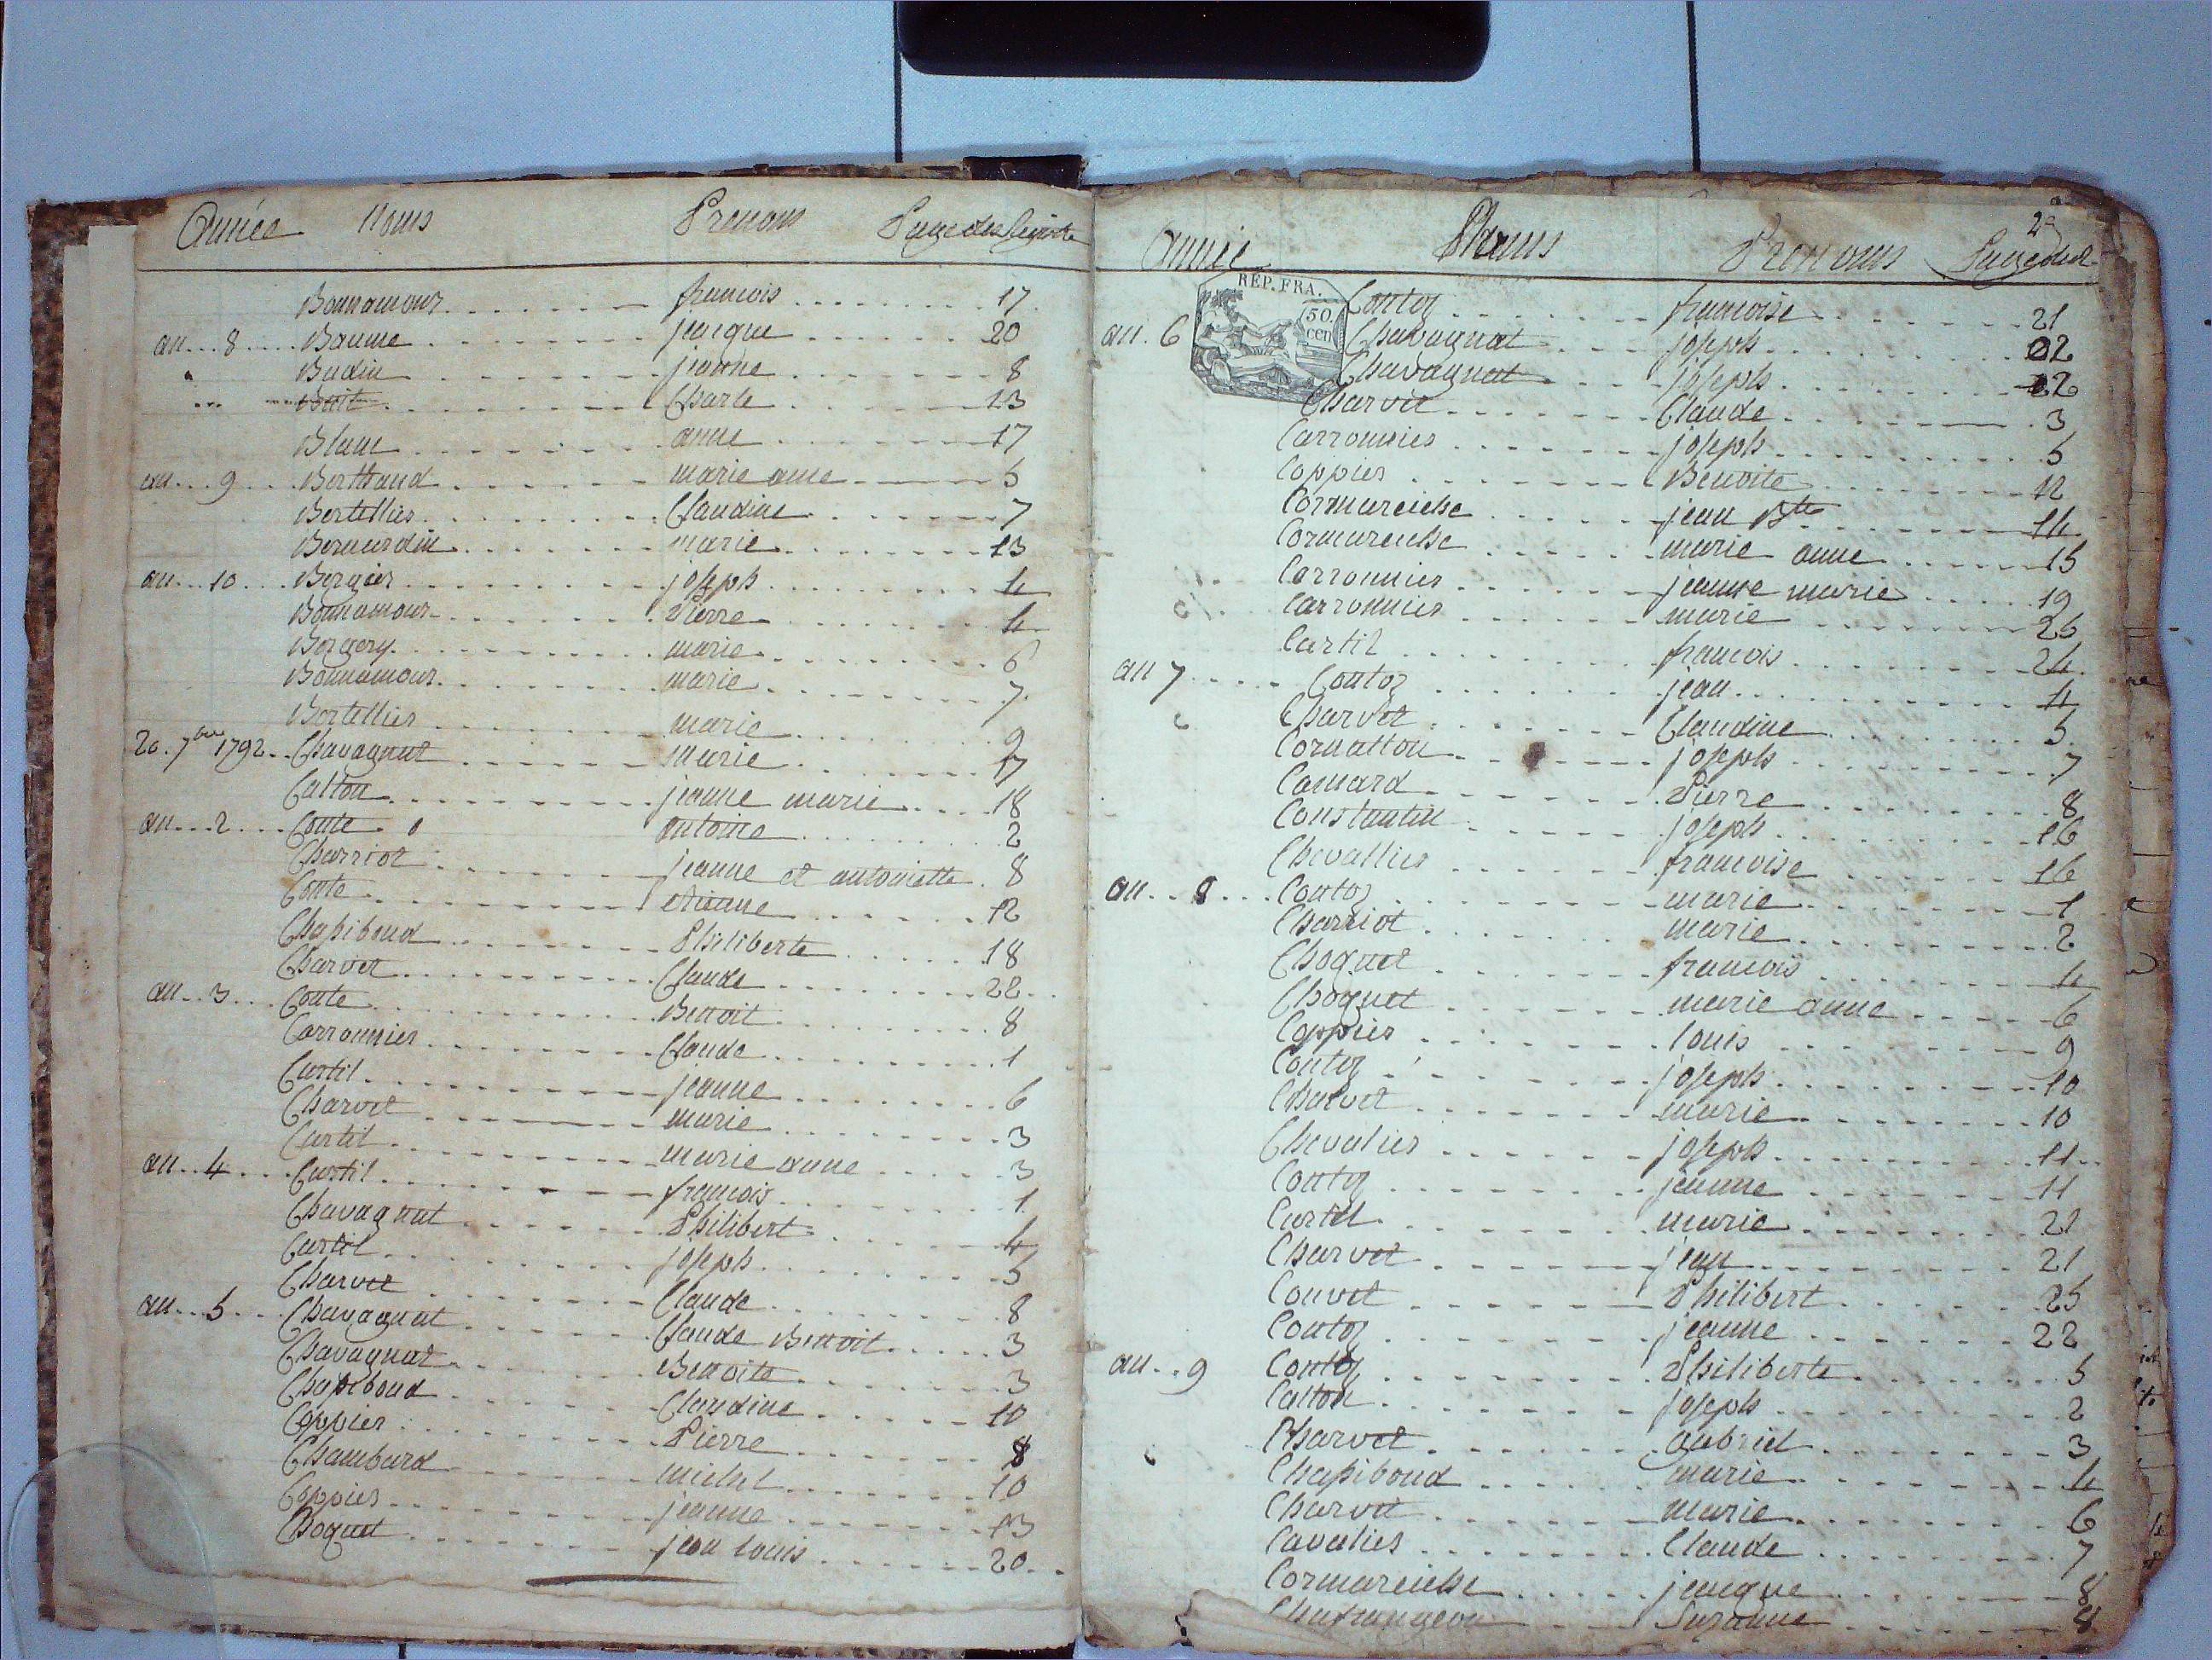 Année Noms Prenoms Page des Registre
Bonnamour francois 17
an 8 Baume jacque 20
Budin jeanne 8
Buit Charle 13
Blanc anne 17
an 9 Berthaud marie anne 5
Bertellier Claudine 7
Bernardin marie 13
an 10 Bergier joseph 4
Bonnamour Pierre 4
Bergery marie 6
Bonnamour marie 7
Bertellier marie 9
20 7bre 1792 Chavagnat marie 17
Catton jeanne marie 18
an 2 Conte antoine 2
Charriot jeanne et antoinette 8
Conte etienne 12
Chapiboud Philiberte 18
Charvet Claude 22
an 3 Conte Benoit 8
Carronnier Claude 1
Curtil jeanne 6
Charvet marie 3
Curtil marie anne 3
an 4 Curtil francois 1
Chavagnat Philibert 4
Curtil joseph 5
Charvet Claude 8
an 5 Chavagnat Claude Benoit 3
Chavagnat Benoite 3
Chapiboud Claudine 10
Coppier Pierre 8
Chambard michel 10
Coppier jeanne 13
Choquet jean louis 20
2e
Année Noms Prenoms Page des
REP. FRA.
50. cen
Contoz francoise 21
an 6 Chavagnat joseph 22
Chavagnat joseph 22
Charvet Claude 3
Carronnier joseph 5
Coppier Benoite 12
Cormareiche jean Bte 14
Cormareiche marie anne 15
Carronnier jeanne marie 19
Carronnier marie 25
Curtil francois 24
an 7 Contoz jean 4
Charvet Claudine 5
Cornatton joseph 7
Camard Pierre 8
Constantin joseph 16
Chevallier francoise 16
an 8 Contoz marie 1
Charriot marie 2
Choquet francois 4
Choquet marie anne 6
Coppier louis 9
Contoz joseph 10
Charvet marie 10
Chevalier joseph 11
Contoz jeanne 11
Curtil marie 21
Charvet jean 21
Couvet Philibert 25
Contoz jeanne 22
an 9 Contoz Philiberte 5
Catton joseph 2
Charvet gabriel 3
Chapiboud marie 4
Charvet marie 6
Cavalier Claude 7
Cormareiche jacque 8
Suzanne 8